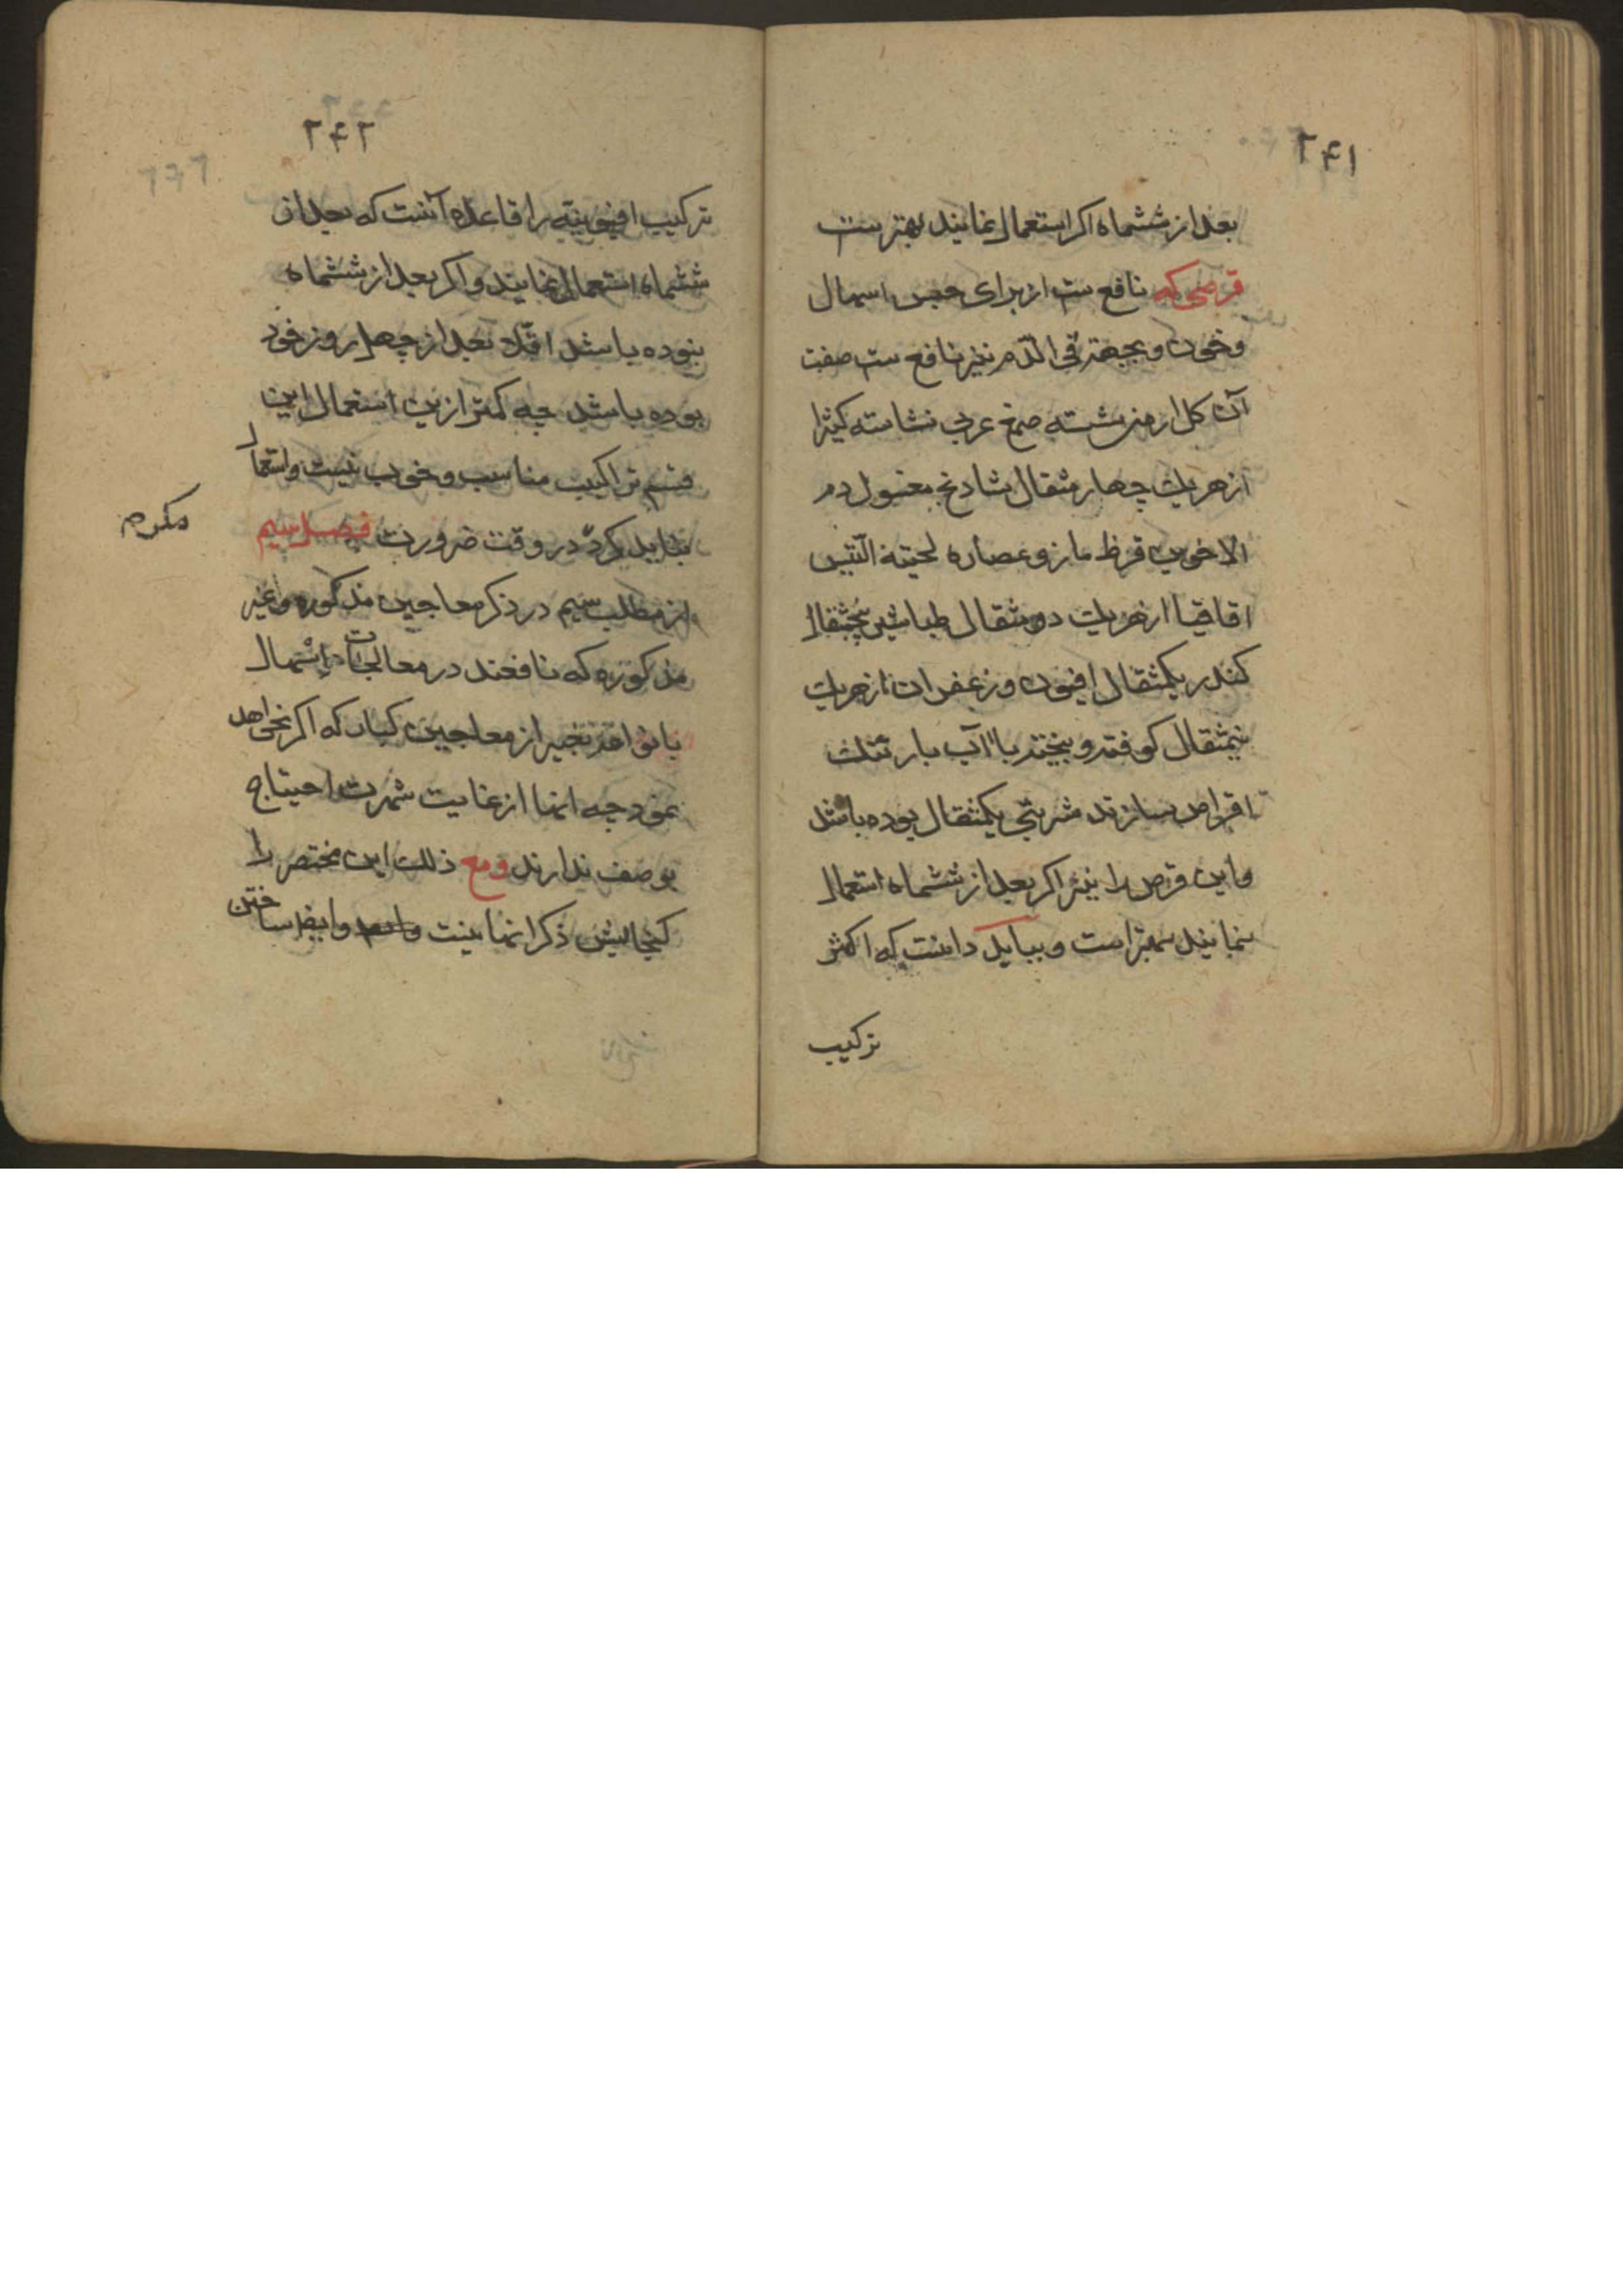 ۲۴۱
بعد از ششماه اکر استعمال نمایند بهتر ست
قرصی که نافع ست از برای حبس اسهال
و خون و بجهة قی الدّم نیز نافع ست صفت
آن کل ارمنی شسته صمغ عربی نشاسته کثیرا
از هریک چهار مثقال شادنج مغسول دم
الاخوین قرظ مازو عصاره لحیته التّیس
اقاقیا از هریک دو مثقال طباشیر
کندر یکمثقال افیون و زعفران از هریک
نیمثقال کوفته و بیخته با آب بارتنک
اقراص سازند شربتی یکمثقال بوده باشد
و این قرص را نیز اکر بعد از ششماه استعمال
نمایند بهتر است و بباید دانست که اکثر
ترکیب
۲۴۲
ترکیب افیونیّه را قاعده آنست که بعد از
ششماه استعمال نمایند و اکر بعد از ششماه
نبوده باشد اقلاّ بعد از چهل روز خود
بوده باشد چه کمتر ازین استعمال این
قسم تراکیب مناسب و خوب نیست و استعمال
نباید کرد در وقت ضرورت فصل سیم
از مطلب سیم در ذکر معاجین مذکوره و غیر
مذکوره که نافعند در معالجات اسهال
یا نواقد بغیر از معاجین کبار که اکر نخواهد
نمود چه انها از غایت شهرت احتیاج
بوصف ندارند و مع ذلک این مختصر را
کنجایش ذکر انها نیست و ایضا ساختن